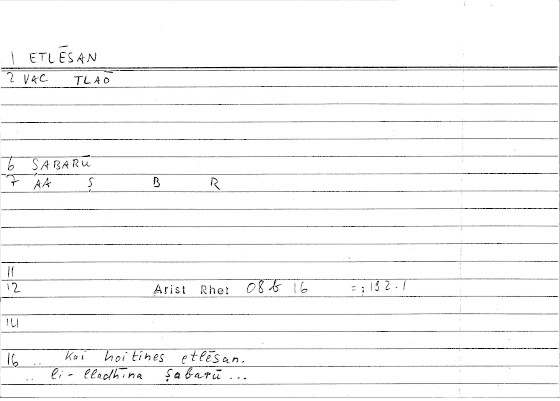 1 ETLĒSAN
2 VAC TLAŌ
6 ṢABARŪ
7 AA Ṣ B R
11
12 Arist Rhet 08b 16 =;132.1
14
16 .. kai hoitines etlēsan.
.. li-lladhīna ṣabarū ...